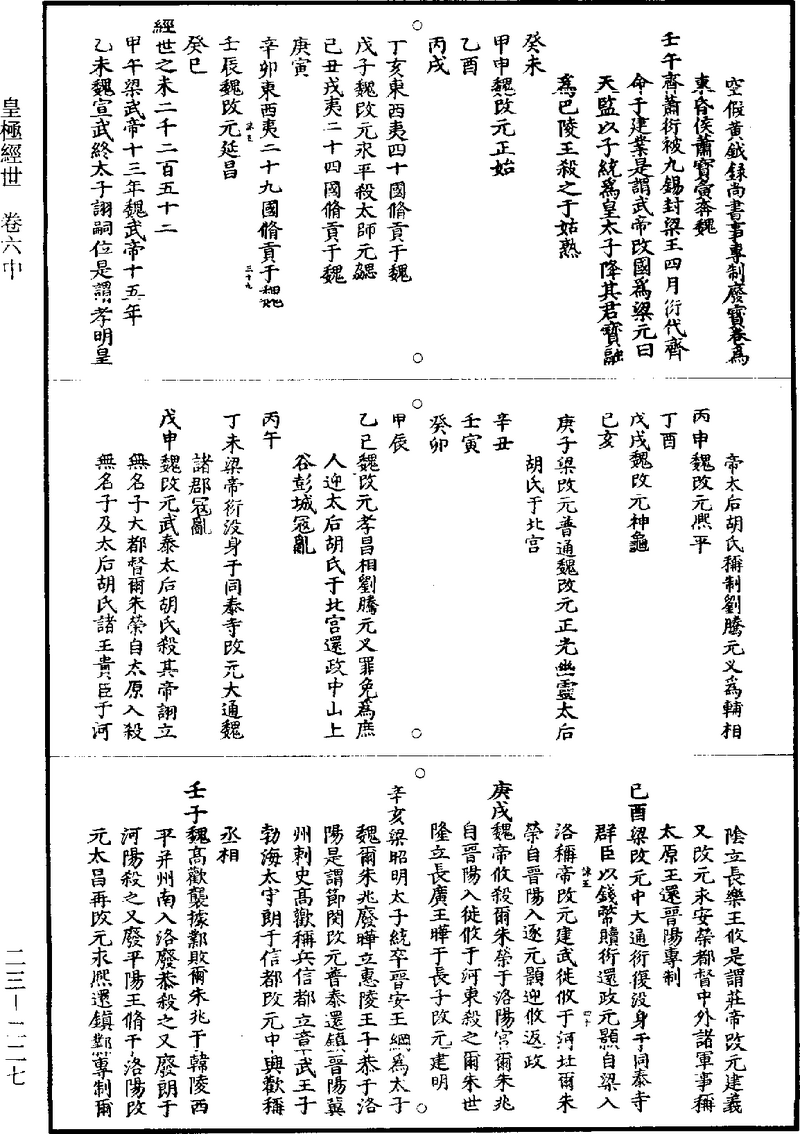 皇極經世　卷六中
空假黃鉞錄尚書事專制廢寶卷爲
東昏侯蕭寶寅奔魏
壬午齊蕭衍被九錫封梁王四月衍代齊
命于建業是謂武帝改國爲梁元曰
天監以子統爲皇太子降其君寶融
爲巴陵王殺之于姑熟
癸未
甲申魏改元正始
乙酉
丙戌
丁亥東西夷四十國脩貢于魏
戊子魏改元永平殺太師元勰
己丑戎夷二十四國脩貢于魏
庚寅
辛卯東西夷二十九國脩貢于魏
壬辰魏改元延昌
癸巳
經世之未二千二百五十二
甲午梁武帝十三年魏武帝十五年
乙未魏宣武終太子詡嗣位是謂孝明皇
帝太后胡氏稱制劉騰元乂爲輔相
丙申魏改元熙平
丁酉
戊戌魏改元神龜
己亥
庚子梁改元普通魏改元正光幽靈太后
胡氏于北宮
辛丑
壬寅
癸卯
甲辰
乙巳魏改元孝昌相劉騰元乂罪免爲庶
人迎太后胡氏于北宮還政中山上
谷彭城寇亂
丙午
丁未梁帝衍没身于同泰寺改元大通魏
諸郡寇亂
戊申魏改元武泰太后胡氏殺其帝詡立
無名子大都督爾朱榮自太原入殺
無名子及太后胡氏諸王貴臣于河
陰立長樂王攸是謂莊帝改元建義
又改元永安榮都督中外諸軍事稱
太原王還晉陽專制
己酉梁改元中大通衍復没身于同泰寺
群臣以錢幣贖衍還政元顥自梁入
洛稱帝改元建武徙攸于河北爾朱
榮自晉陽入逐元顥迎攸返政
庚戌魏帝攸殺爾朱榮于洛陽宮爾朱兆
自晉陽入徙攸于河東殺之爾朱世
隆立長廣王曄于長子改元建明
辛亥梁昭明太子統卒晉安王綱爲太子
魏爾朱兆廢曄立惠陵王子恭于洛
陽是謂節閔改元普泰還鎮晉陽冀
州刺史高歡稱兵信都立章武王子
勃海太守朗于信都改元中興歡稱
丞相
壬子魏高歡襲據鄴敗爾朱兆于韓陵西
平并州南入洛廢恭殺之又廢朗于
河陽殺之又廢平陽王脩于洛陽改
元太昌再改元永熙還鎮鄴專制爾
二三－二二七